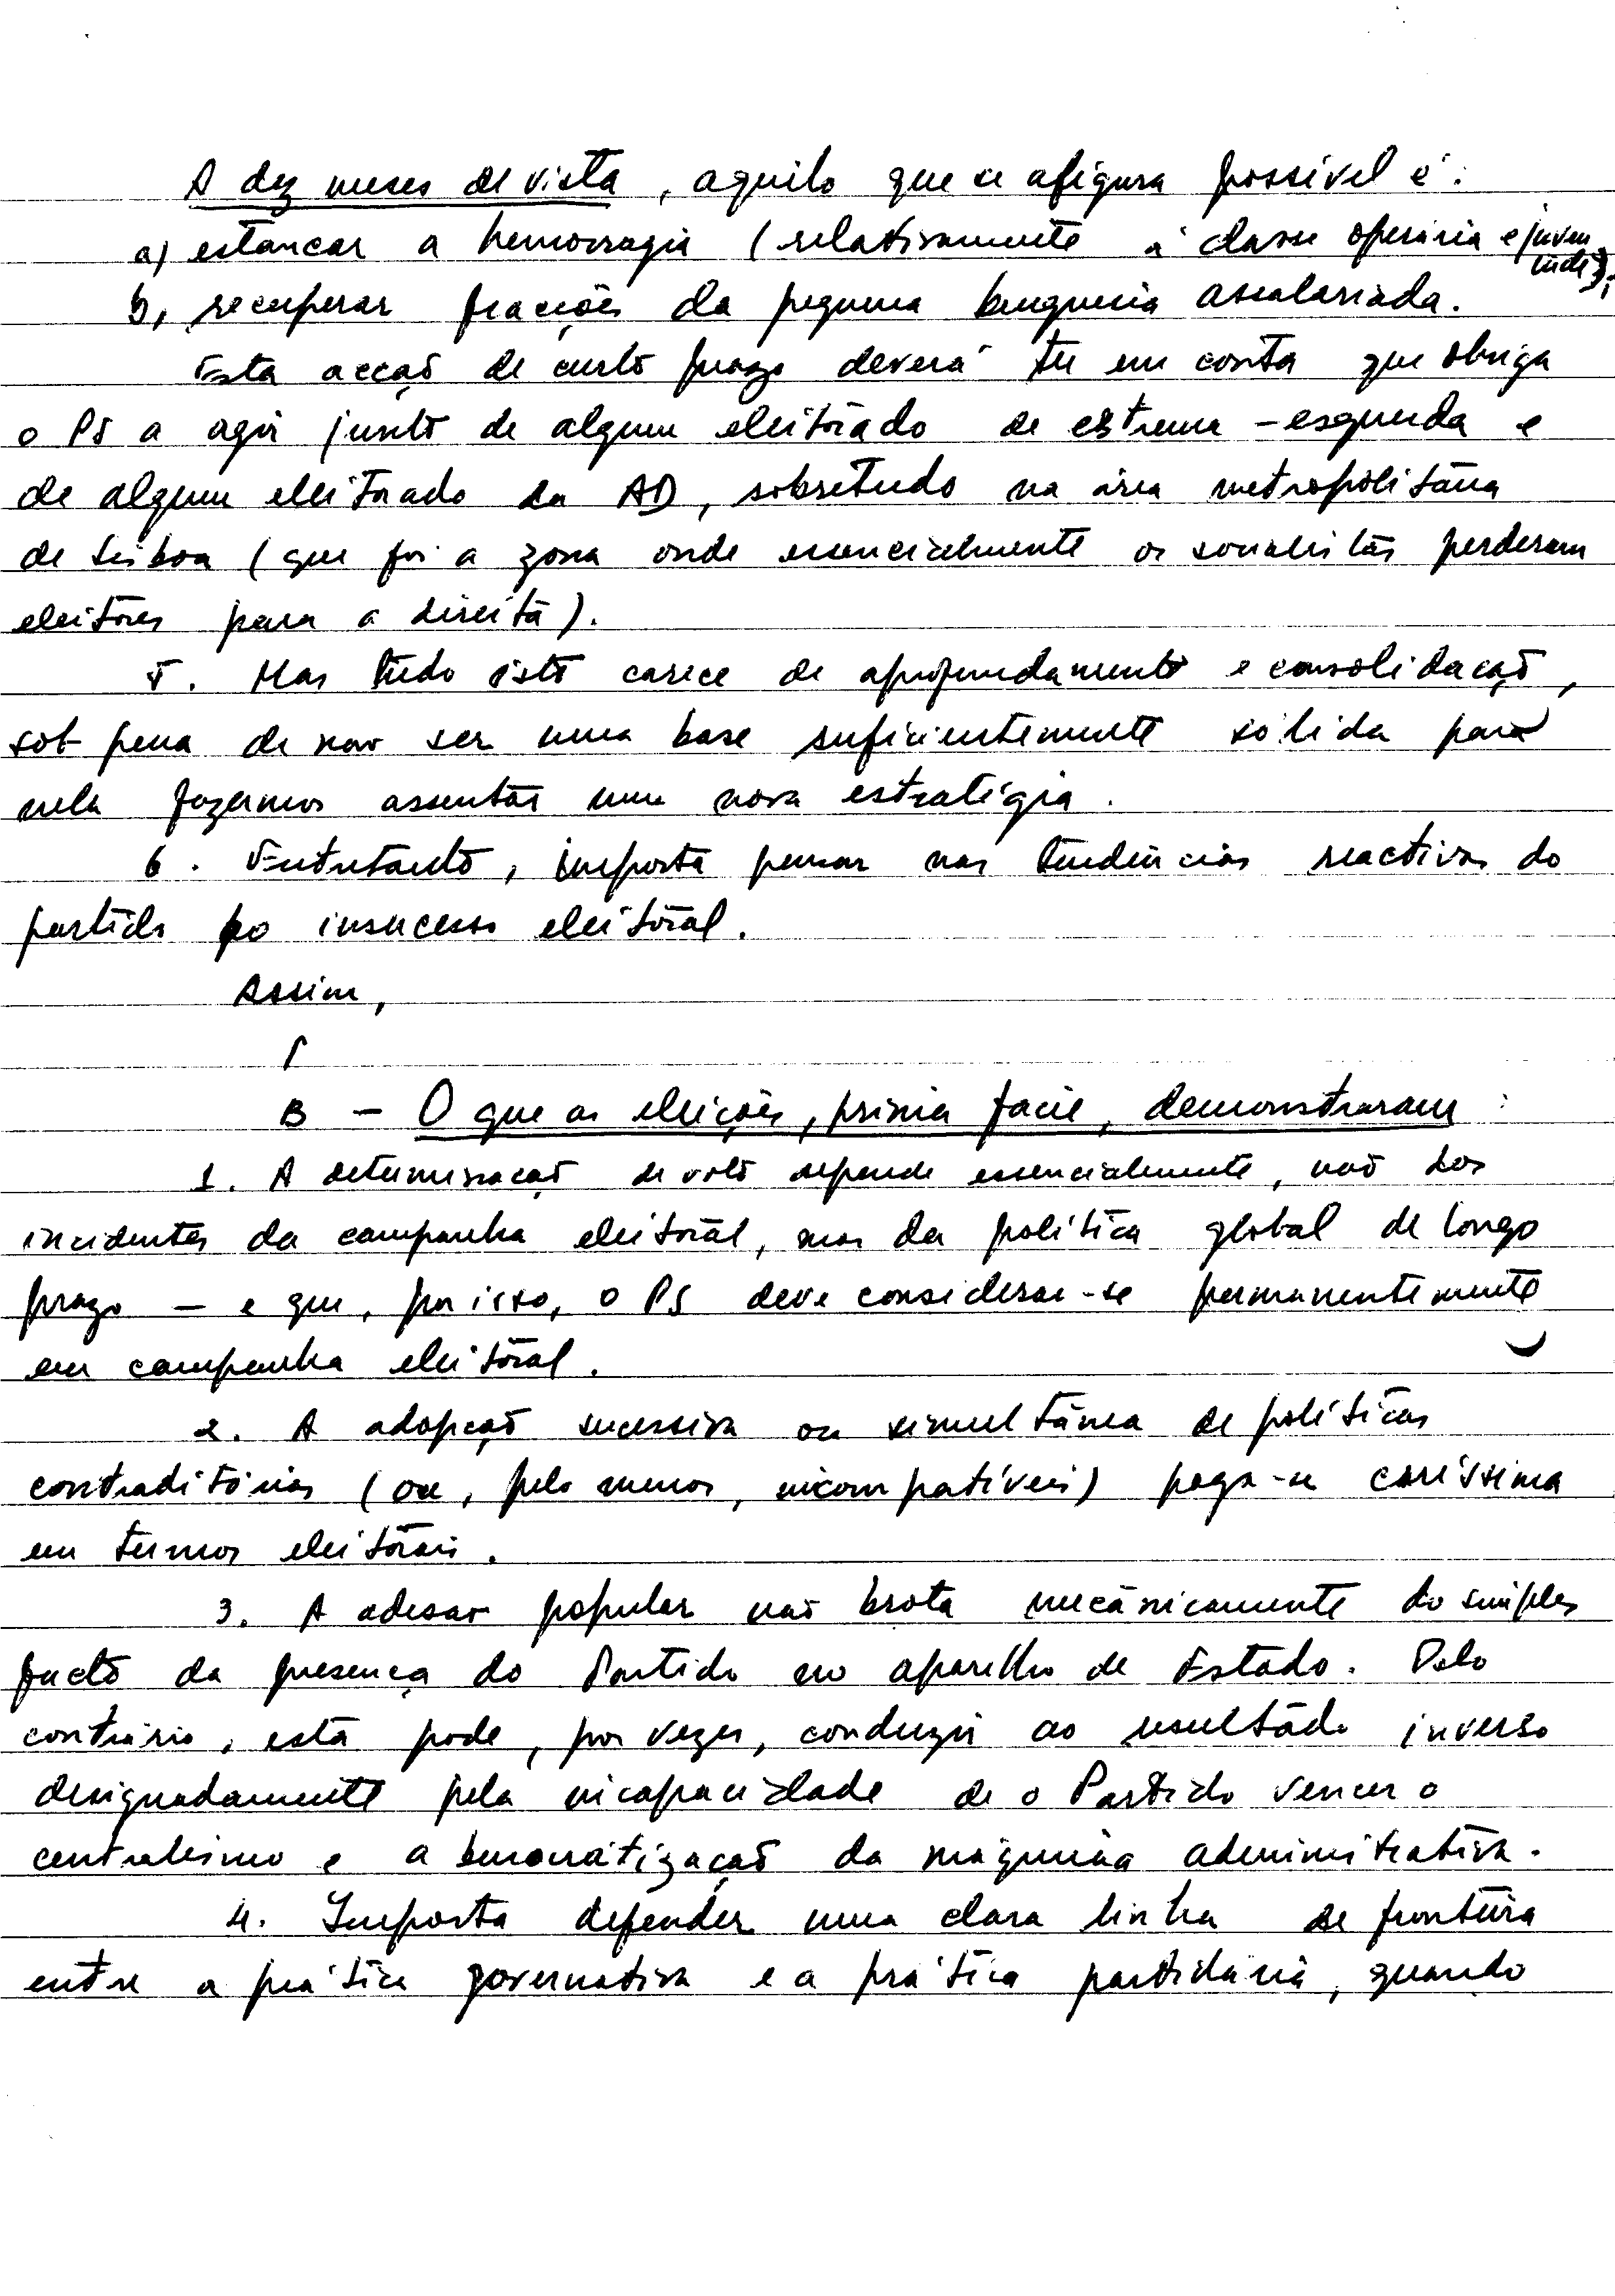 A dez meses de vista, aquilo que se afigura possível é:
a) estancar a hemorragia (relativamente à classe operária e juventude);
b) recuperar fracções da pequena burguesia assalariada.
Esta acção de curto prazo deverá ter em conta que obriga
o PS a agir junto de algum eleitorado de estrema-esquerda e
de algum eleitorado da AD, sobretudo na área metropolitana
de Lisboa (que foi a zona onde essencialmente os socialistas perderam
eleitores para a direita).
5. Mas tudo isto carece de aprofundamento e consolidação,
sob pena de não ser uma base suficientemente sólida para
nela fazermos assentar uma nova estratégia.
6. Entretanto, importa pensar nas tendências reactivas do
partido ao insucesso eleitoral.
Assim,
B - O que as eleições, prima facie, demonstraram:
1. A determinação de voto depende essencialmente, não dos
incidentes da campanha eleitoral, mas da política global de longo
prazo - e que, por isso, o PS deve considerar-se permanentemente
em campanha eleitoral.
2. A adopção sucessiva ou simultânea de políticas
contraditórias (ou, pelo menos, incompatíveis) paga-se caríssima
em termos eleitorais.
3. A adesão popular não brota mecânicamente do simples
facto da presença do Partido no aparelho de Estado. Pelo
contrário, esta pode, por vezes, conduzir ao resultado inverso
designadamente pela incapacidade de o Partido vencer o
centralismo e a burocratização da máquina administrativa.
4. Importa defender uma clara linha de fronteira
entre a prática governativa e a prática partidária, quando